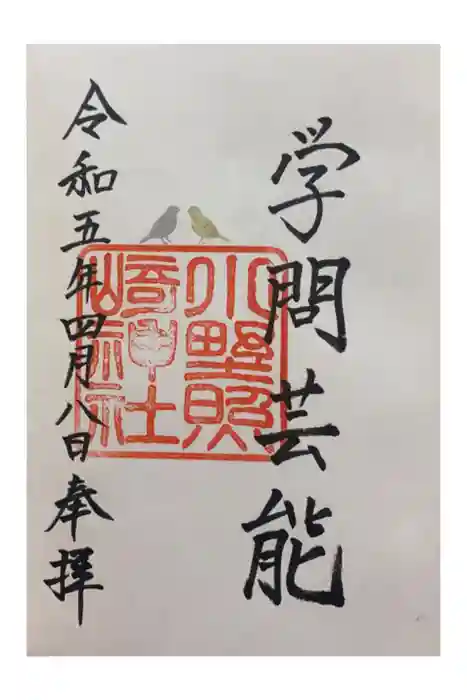 学問芸能
小野照
崎神社
令和五年四月八日奉拝